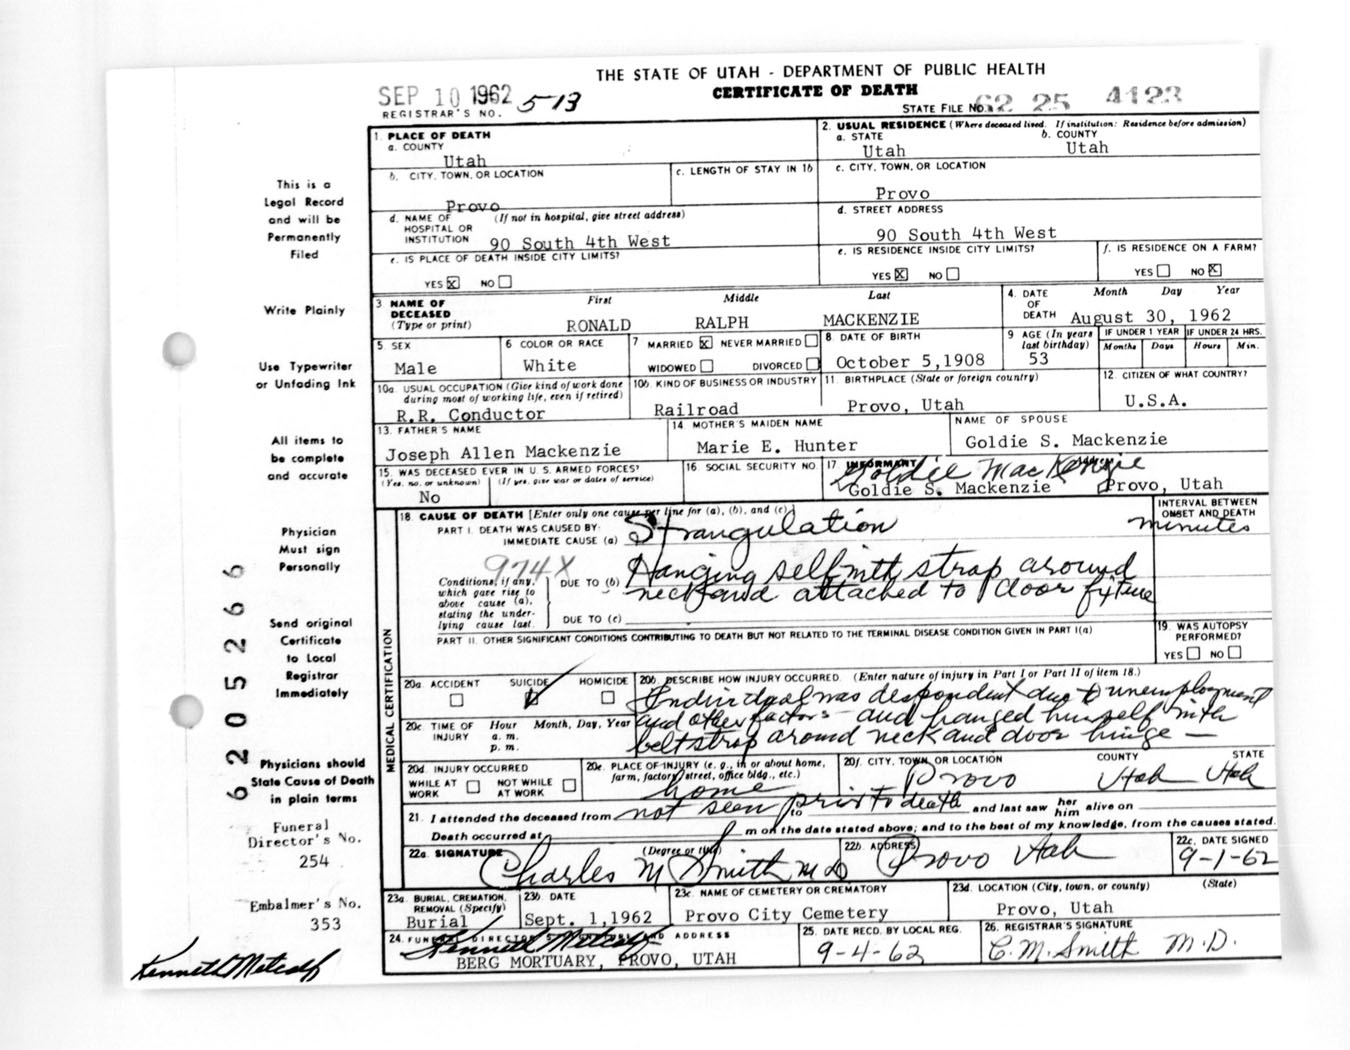 THE STATE OF UTAH - DEPARTMENT OF PUBLIC HEALTH
CERTIFICATE OF DEATH
SEP 10 1962 5-13
REGISTRAR'S NO.
STATE FILE NO. 62 25 4123
This is a
Legal Record
and will be
Permanently
Filed
Write Plainly
Use Typewriter
or Unfading Ink
All items to
be complete
and accurate
Physician
Must sign
Personally
Send original
Certificate
to Local
Registrar
Immediately
Physicians should
State Cause of Death
in plain terms
Funeral
Director's No.
254
Embalmer's No.
353
Kenneth Metcalf
6205266
1. PLACE OF DEATH
a. COUNTY
Utah
b. CITY, TOWN, OR LOCATION
Provo
c. LENGTH OF STAY IN 1b
d. NAME OF (If not in hospital, give street address)
HOSPITAL OR
INSTITUTION 90 South 4th West
e. IS PLACE OF DEATH INSIDE CITY LIMITS?
YES X NO
2. USUAL RESIDENCE (Where deceased lived. If institution: Residence before admission)
a. STATE b. COUNTY
Utah Utah
c. CITY, TOWN, OR LOCATION
Provo
d. STREET ADDRESS
90 South 4th West
e. IS RESIDENCE INSIDE CITY LIMITS?
YES X NO
f. IS RESIDENCE ON A FARM?
YES NO X
3 NAME OF DECEASED (Type or print) First Middle Last
RONALD RALPH MACKENZIE
4. DATE OF DEATH Month Day Year
August 30, 1962
5. SEX
Male
6 COLOR OR RACE
White
7 MARRIED X NEVER MARRIED
WIDOWED DIVORCED
8. DATE OF BIRTH
October 5,1908
9 AGE (In years last birthday)
53
IF UNDER 1 YEAR IF UNDER 24 HRS.
Months Days Hours Min.
10a. USUAL OCCUPATION (Give kind of work done
during most of working life, even if retired)
R.R. Conductor
10b. KIND OF BUSINESS OR INDUSTRY
Railroad
11. BIRTHPLACE (State or foreign country)
Provo, Utah
12. CITIZEN OF WHAT COUNTRY?
U.S.A.
13. FATHER'S NAME
Joseph Allen Mackenzie
14 MOTHER'S MAIDEN NAME
Marie E. Hunter
NAME OF SPOUSE
Goldie S. Mackenzie
15. WAS DECEASED EVER IN U. S. ARMED FORCES?
(Yes, no, or unknown) (If yes, give war or dates of service)
No
16 SOCIAL SECURITY NO.
17. INFORMANT
Goldie MacKenzie
Goldie S. Mackenzie Provo, Utah
MEDICAL CERTIFICATION
18. CAUSE OF DEATH [Enter only one cause per line for (a), (b), and (c).]
INTERVAL BETWEEN
ONSET AND DEATH
PART I. DEATH WAS CAUSED BY:
IMMEDIATE CAUSE (a) Strangulation minutes
974X
Conditions, if any,
which gave rise to
above cause (a),
stating the under-
lying cause last.
DUE TO (b) Hanging self with strap around
neck and attached to door fixture
DUE TO (c)
PART II. OTHER SIGNIFICANT CONDITIONS CONTRIBUTING TO DEATH BUT NOT RELATED TO THE TERMINAL DISEASE CONDITION GIVEN IN PART I(a)
19. WAS AUTOPSY
PERFORMED?
YES NO
20a. ACCIDENT SUICIDE HOMICIDE
20b. DESCRIBE HOW INJURY OCCURRED. (Enter nature of injury in Part I or Part II of item 18.)
Individual was despondent due to unemployment
and other factors - and hanged himself with
belt strap around neck and door hinge -
20c. TIME OF INJURY Hour Month, Day, Year
a. m.
p. m.
20d. INJURY OCCURRED
WHILE AT WORK NOT WHILE AT WORK
20e. PLACE OF INJURY (e. g., in or about home,
farm, factory, street, office bldg., etc.)
home
20f. CITY, TOWN, OR LOCATION COUNTY STATE
Provo Utah Utah
21. I attended the deceased from not seen prior to death to and last saw her him alive on
Death occurred at m on the date stated above; and to the best of my knowledge, from the causes stated.
22a. SIGNATURE (Degree or title)
Charles M Smith MD
22b. ADDRESS
Provo Utah
22c. DATE SIGNED
9-1-62
23a. BURIAL, CREMATION,
REMOVAL (Specify)
Burial
23b. DATE
Sept. 1,1962
23c. NAME OF CEMETERY OR CREMATORY
Provo City Cemetery
23d. LOCATION (City, town, or county) (State)
Provo, Utah
24. FUNERAL DIRECTOR'S SIGNATURE AND ADDRESS
Kenneth Metcalf
BERG MORTUARY, PROVO, UTAH
25. DATE RECD. BY LOCAL REG.
9-4-62
26. REGISTRAR'S SIGNATURE
C. M. Smith M.D.